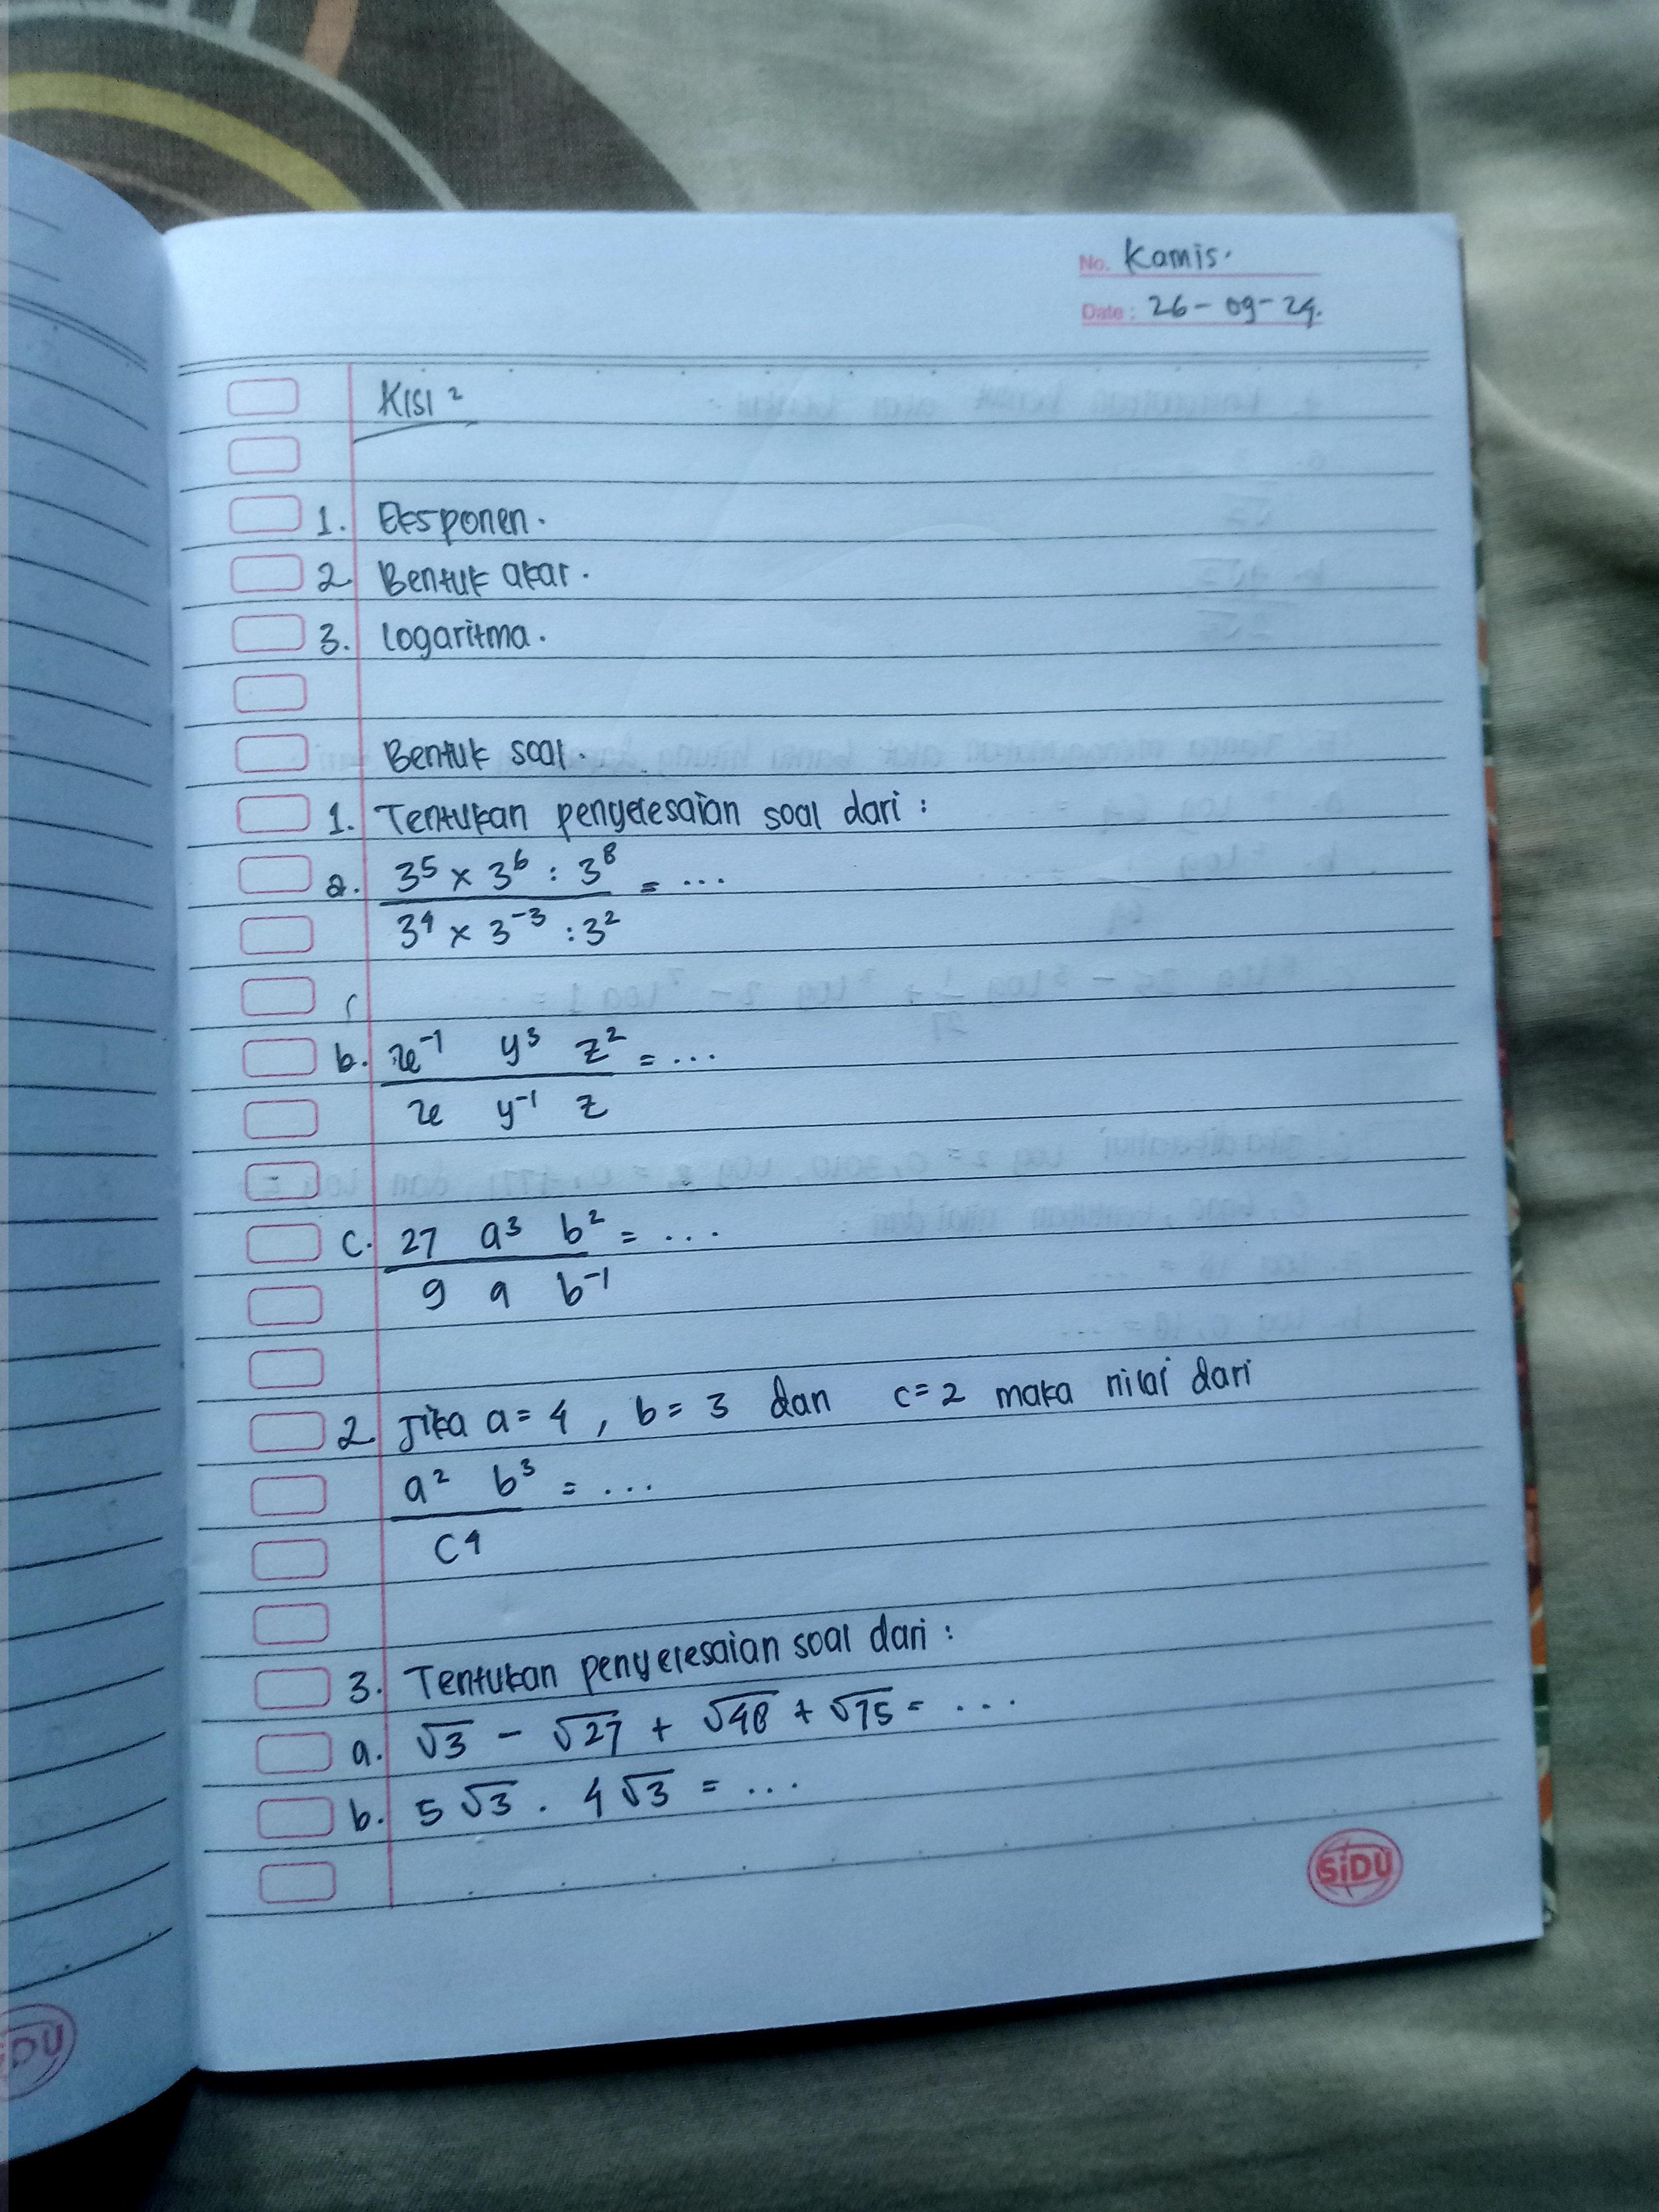 No. Kamis.
Date: 26-09-24.
Kisi²
1. Eksponen.
2 Bentuk akar.
3. Logaritma.
Bentuk soal.
1. Tentukan penyelesaian soal dari :
a. 3⁵ × 3⁶ : 3⁸ = ...
3⁴ × 3⁻³ : 3²
b. x⁻¹ y³ z² = ...
x y⁻¹ z
c. 27 a³ b² = ...
9 a b⁻¹
2 Jika a = 4 , b = 3 dan c = 2 maka nilai dari
a² b³ = ...
c⁴
3. Tentukan penyelesaian soal dari :
a. √3 - √27 + √48 + √75 = ...
b. 5√3 . 4√3 = ...
SiDU